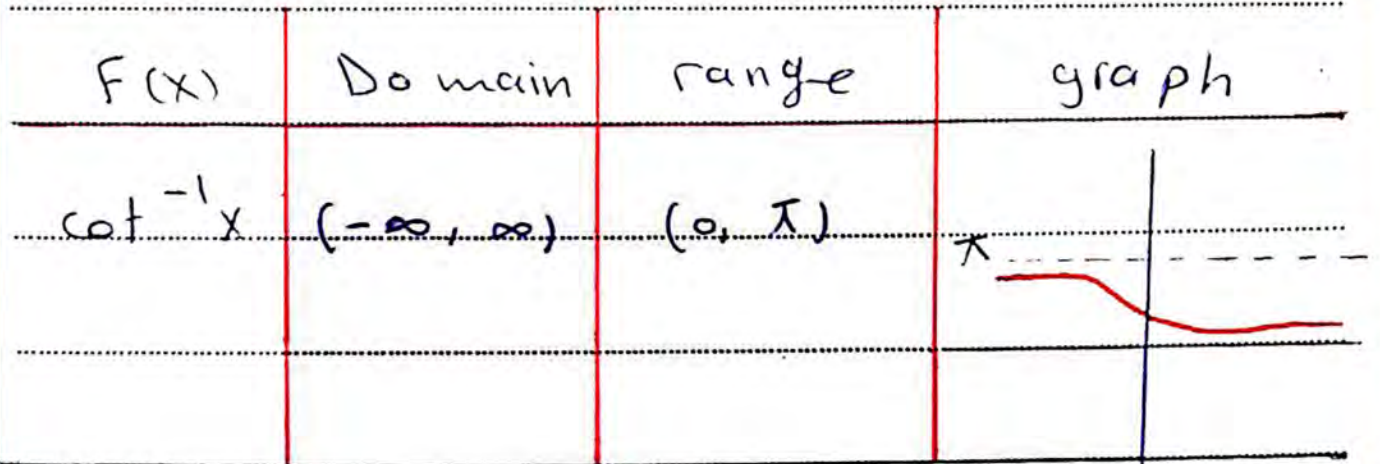 F(x) Domain range graph
cot⁻¹x (-∞, ∞) (0, π)
π